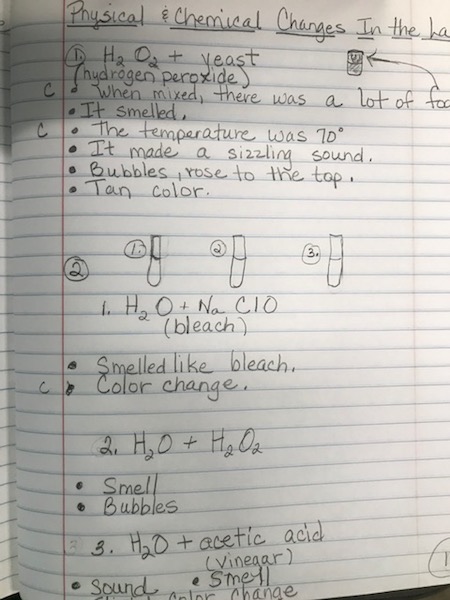 Physical & Chemical Changes In the La
1. H₂O₂ + yeast
(hydrogen peroxide)
C • When mixed, there was a lot of foa
• It smelled.
C • The temperature was 70°
• It made a sizzling sound.
• Bubbles, rose to the top.
• Tan color.
2 1. 2 3.
1. H₂O + Na ClO
(bleach)
• Smelled like bleach.
C • Color change.
2. H₂O + H₂O₂
• Smell
• Bubbles
3. H₂O + acetic acid
(vinegar)
• Sound • Smell
Color Change